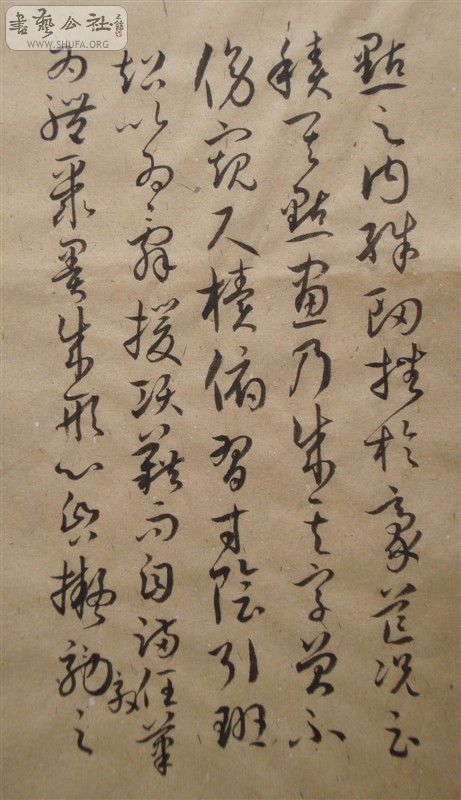 書藝公社
WWW.SHUFA.ORG
點之内殊衄挫於豪芒况云
積其點畫乃成其字曾不
傍窺尺牘俯習寸陰引班
超以為辭援項籍而自滿任筆
為體聚墨成形心昏擬效之